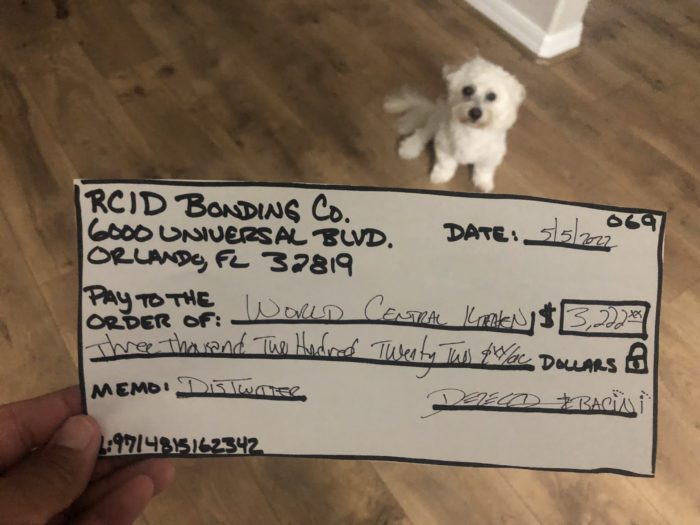 RCID BONDING CO. 069
6000 UNIVERSAL BLVD. DATE: 5/5/2022
ORLANDO, FL 32819
PAY TO THE
ORDER OF: WORLD CENTRAL KITCHEN $ 3,222 xx
Three Thousand Two Hundred Twenty Two DOLLARS
MEMO: DISTWITTER
:97/4815162342